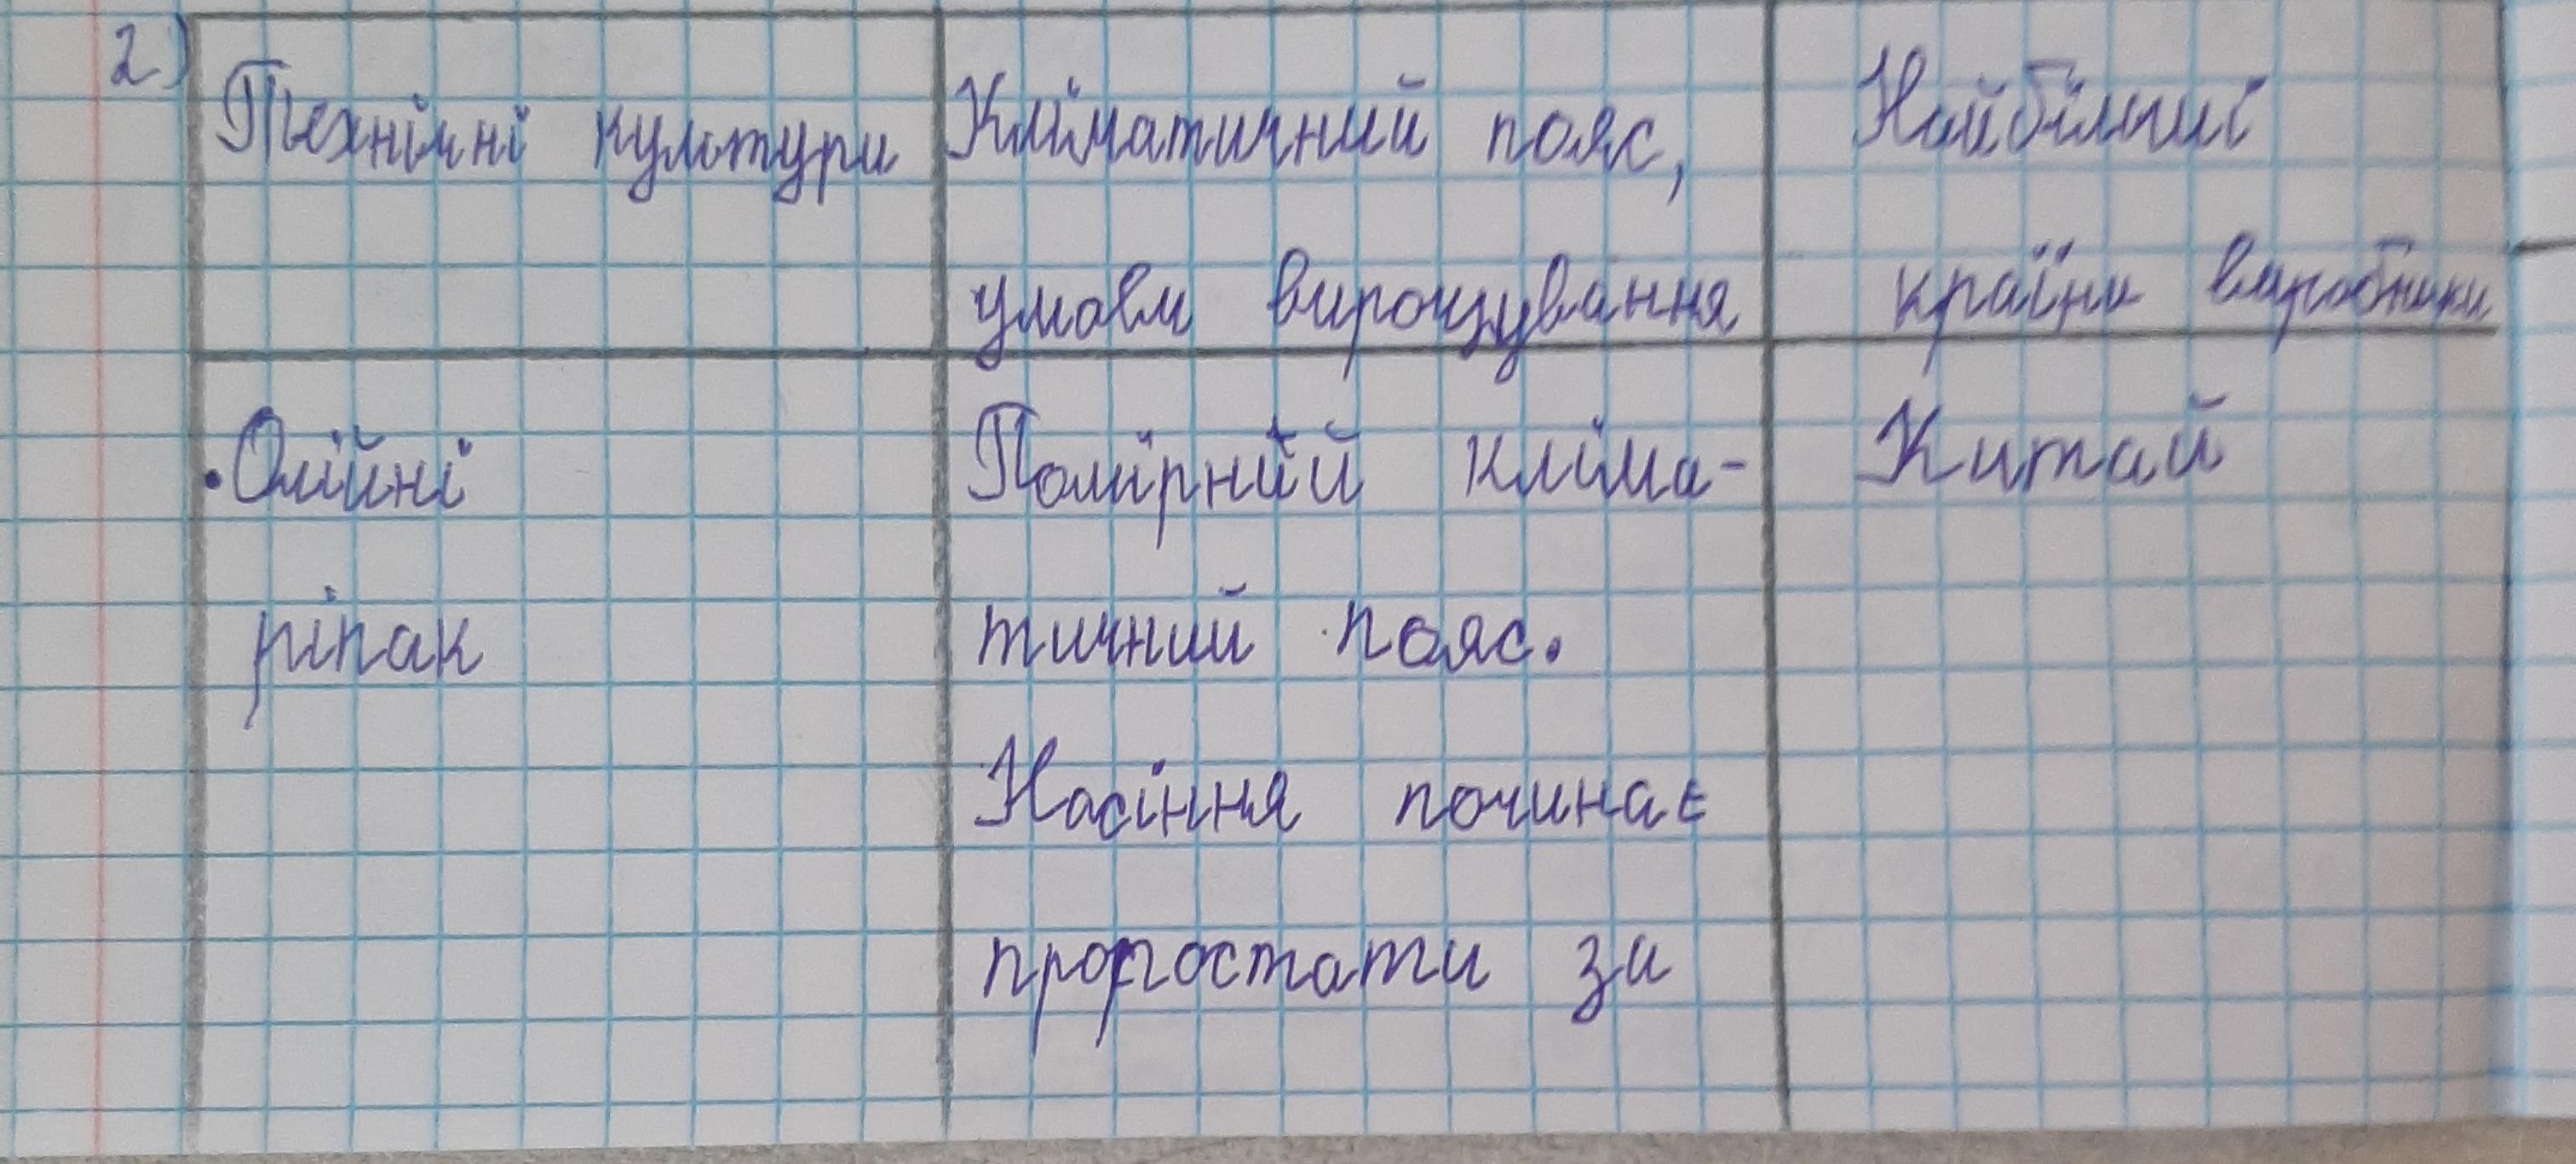 2)
Технічні культури
Кліматичний пояс,
умови вирощування
Найбільші
країни виробники
• Олійні
ріпак
Помірний кліма-
тичний пояс.
Насіння починає
проростати за
Китай